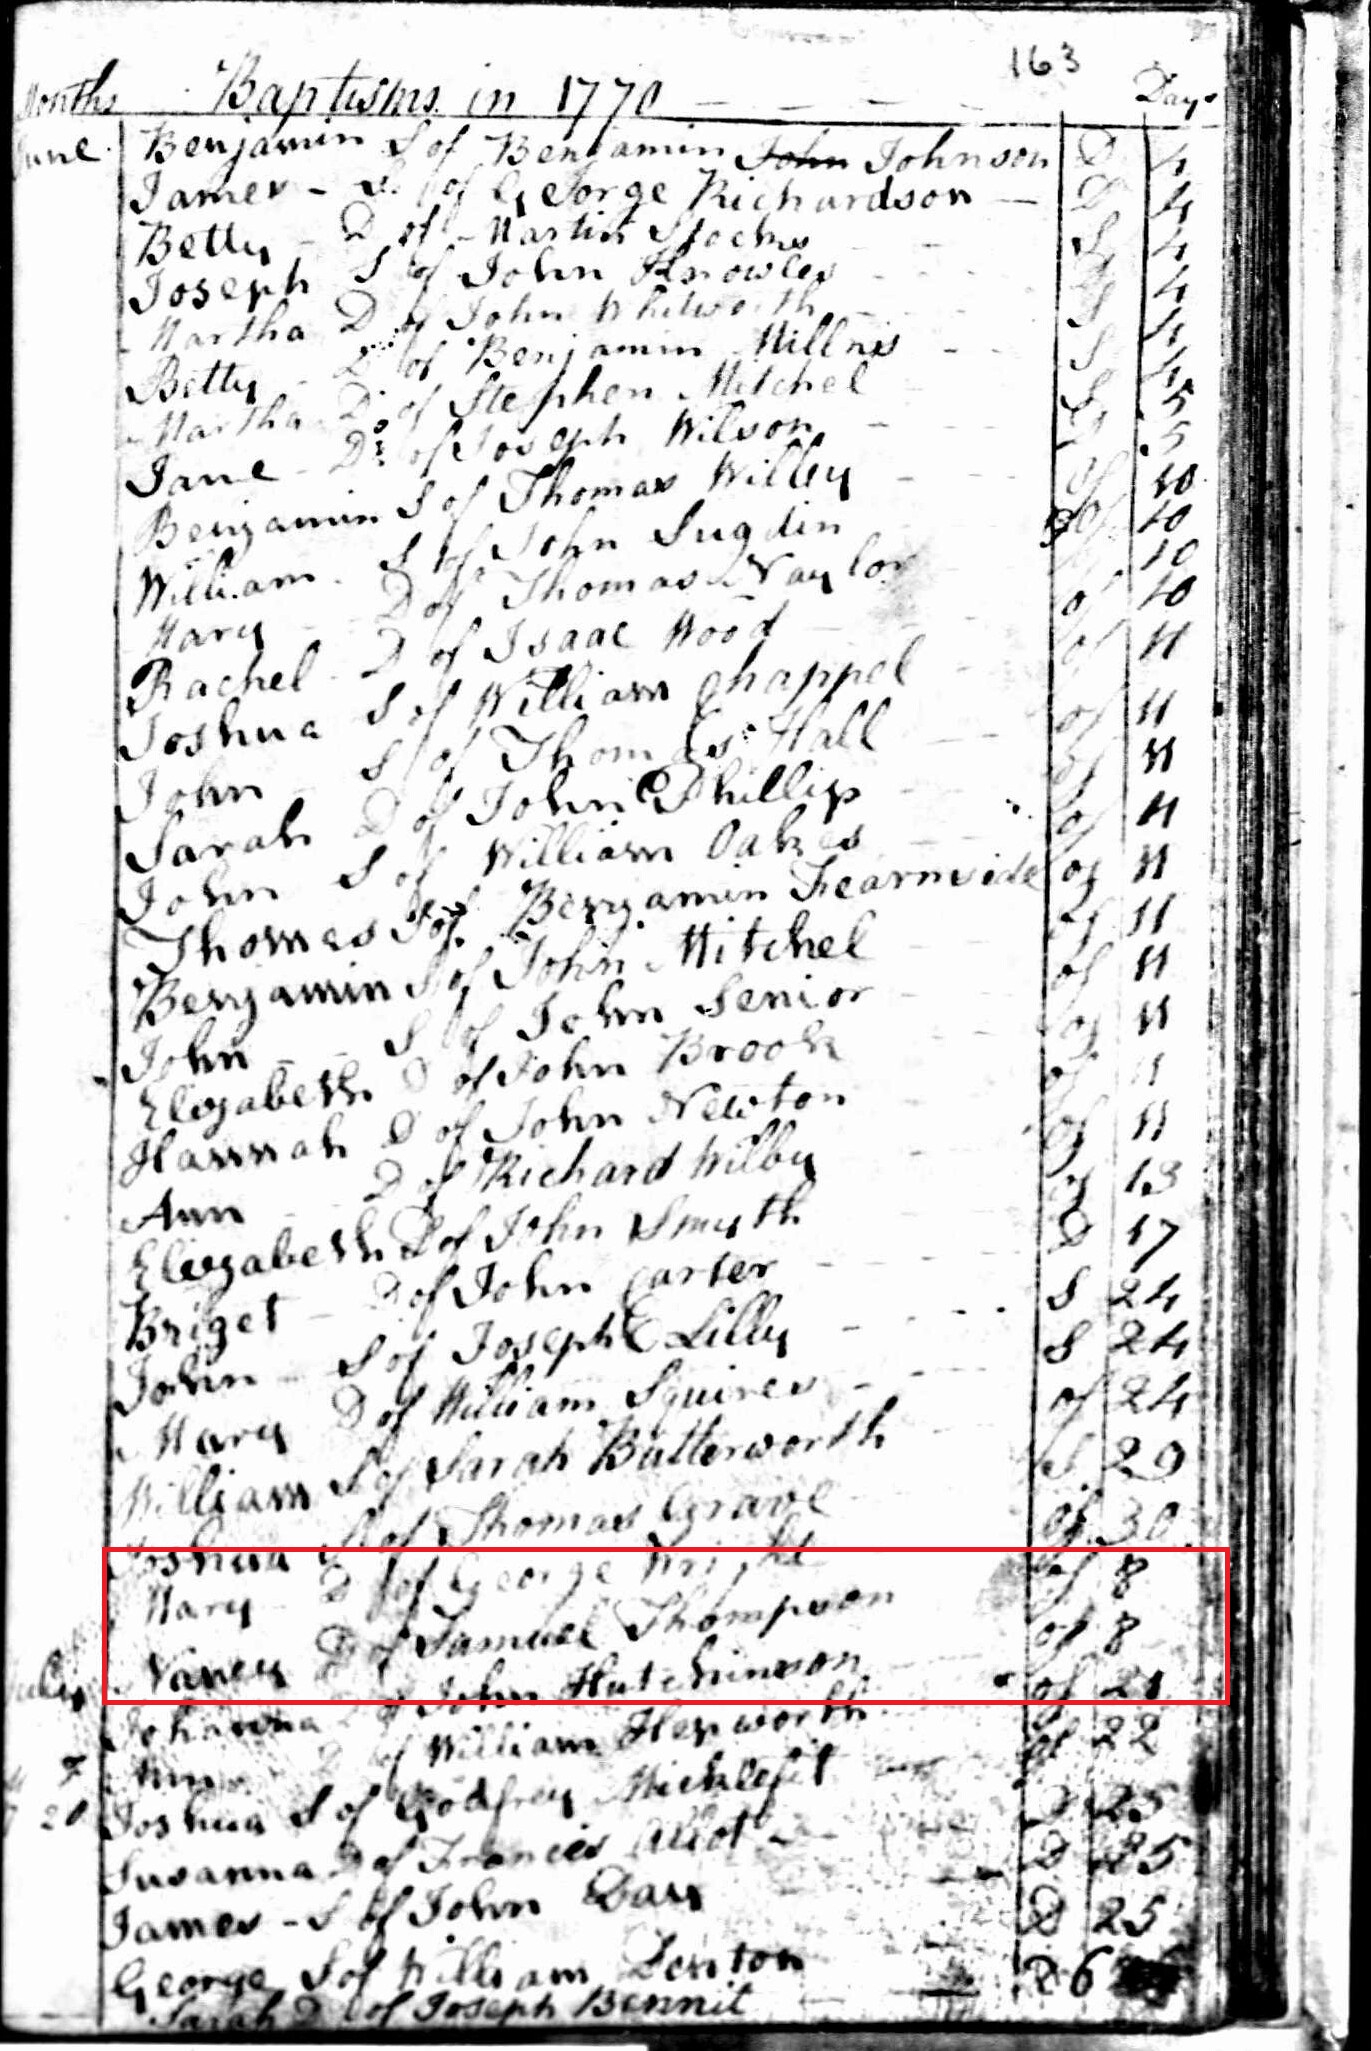 163
Months Baptisms in 1770 Days
June Benjamin S of Benjamin John Johnson D 4
James - S of George Richardson D 4
Betty D of Martin Stocks S 4
Joseph S of John Knowles 4
Martha D of John Whitworth S 4
Betty D of Benjamin Millnis S 4
Martha D of Stephen Mitchel 5
Jane D of Joseph Wilson 5
Benjamin S of Thomas Willey of 10
William S of John Sugdin of 10
Mary D of Thomas Naylor 10
Rachel D of Isaac Wood of 10
Joshua S of William Chappel of 11
John S of Thomas Hall of 11
Sarah D of John Phillip of 11
John S of William Oakes of 11
Thomas S of Benjamin Fearnside of 11
Benjamin S of John Mitchel of 11
John S of John Senior of 11
Elizabeth D of John Brook of 11
Hannah D of John Newton of 11
Ann D of Richard Wilby of 11
Elizabeth D of John Smyth of 13
Briget D of John Carter D 17
John S of Joseph Lilly S 24
Mary D of William Squires S 24
William S of Sarah Butterworth of 24
Joshua S of Thomas Grave S 29
Mary D of George Wright of 30
Nancy D of Samuel Thompson of 8
July Johanna of John Hutchinson of 8
Ann D of William Hepworth of 21
7 Joshua S of Godfrey Micklefit of 22
20 Susanna D of Francis Allot D 25
James - S of John Day D 25
George S of William Denton D 25
Sarah D of Joseph Bennit 26